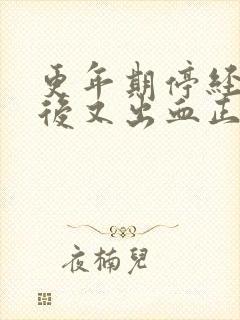 更年期停经
后又出血正
夜楠兒